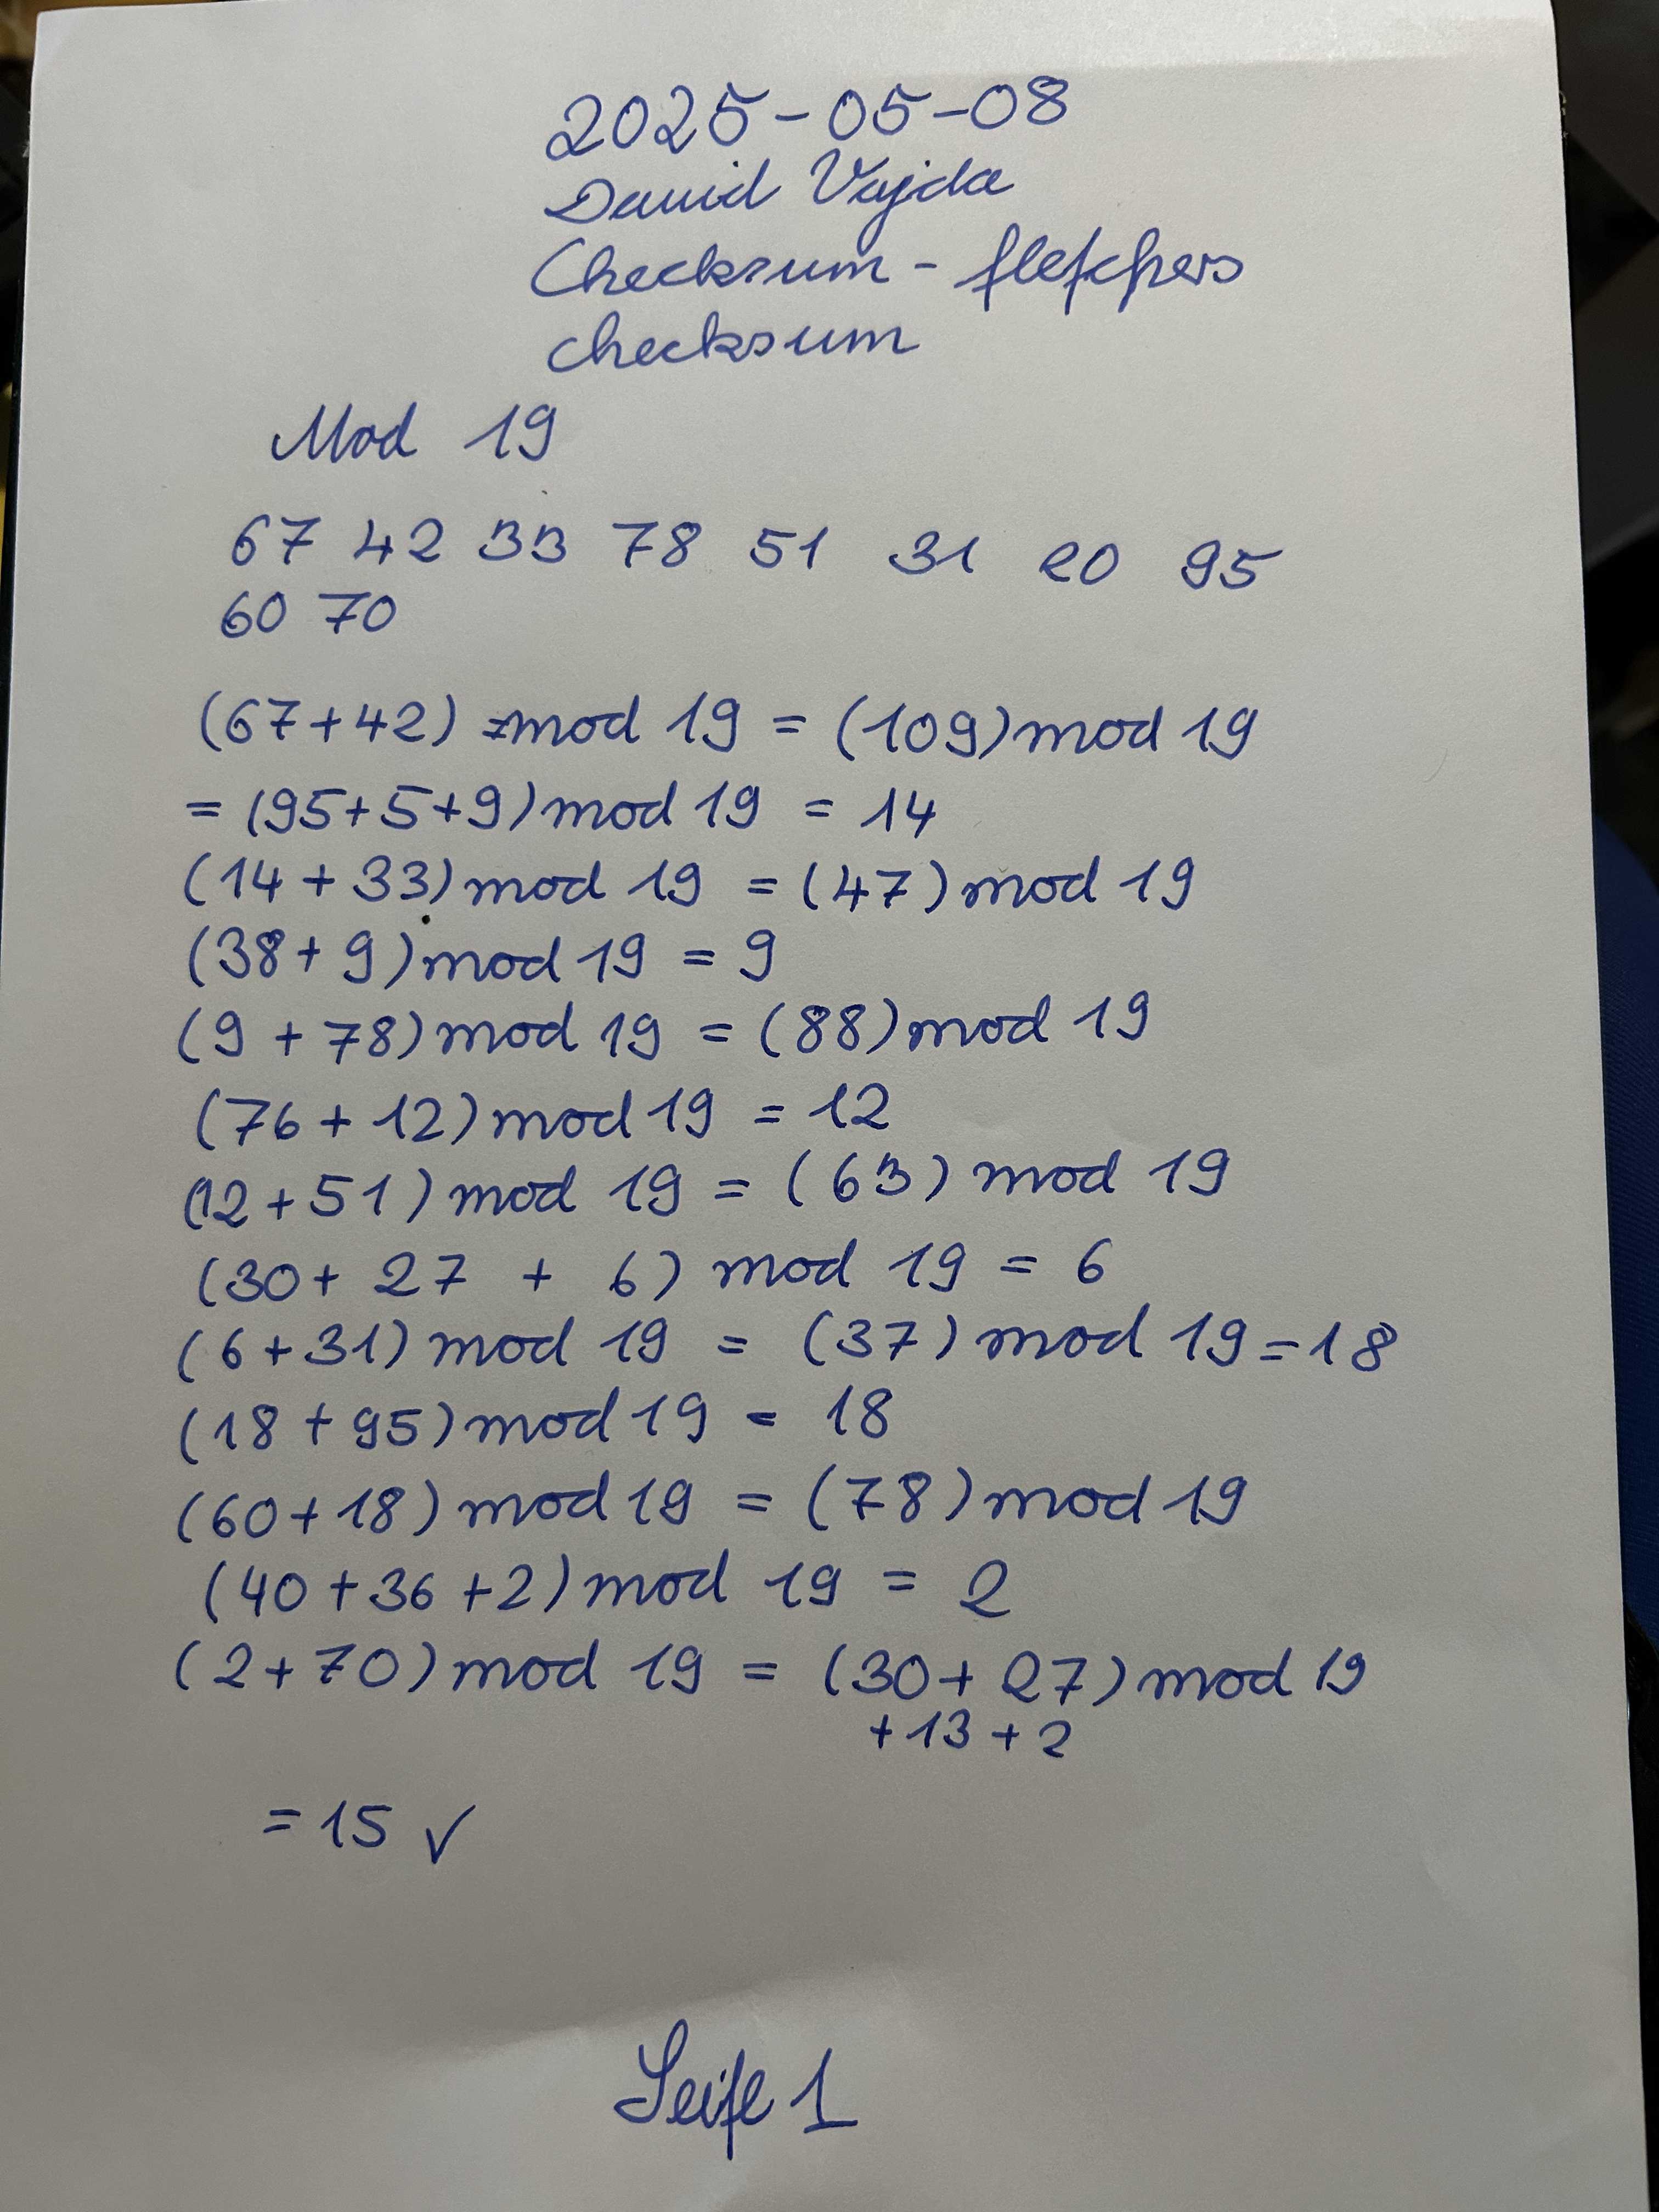 2025-05-08
David Vajda
Checksum - fletchers
checksum
Mod 19
67 42 33 78 51 31 20 95
60 70
(67+42) mod 19 = (109) mod 19
= (95+5+9) mod 19 = 14
(14 + 33) mod 19 = (47) mod 19
(38+ 9) mod 19 = 9
(9 + 78) mod 19 = (88) mod 19
(76 + 12) mod 19 = 12
(12+51) mod 19 = (63) mod 19
(30+ 27 + 6) mod 19 = 6
(6+31) mod 19 = (37) mod 19 = 18
(18 + 95) mod 19 = 18
(60+18) mod 19 = (78) mod 19
(40+36+2) mod 19 = 2
(2+70) mod 19 = (30+ 27) mod 19
+13 + 2
= 15 ✓
Seite 1